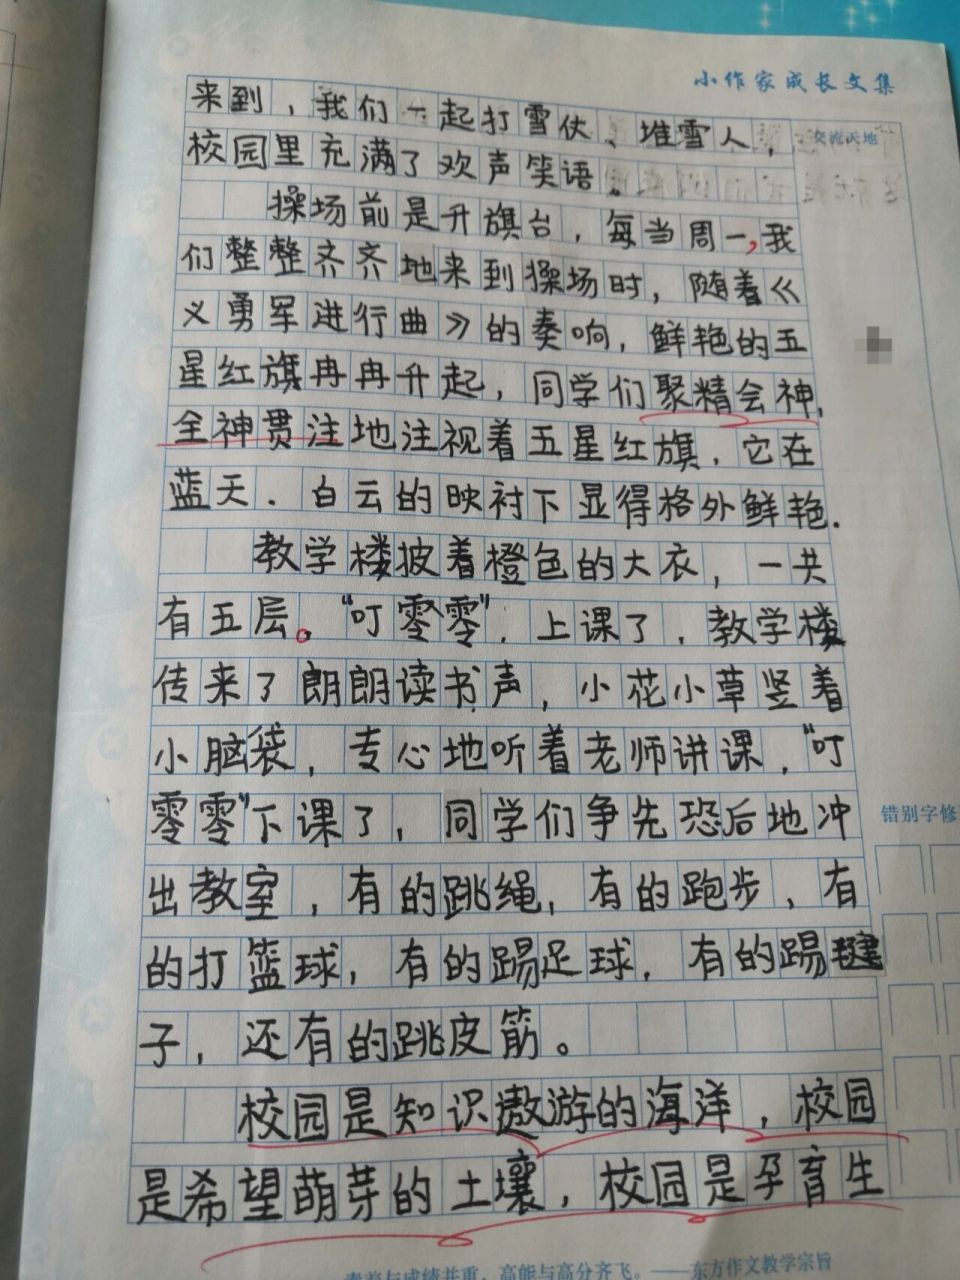 小作家成长文集
来到，我们一起打雪仗、堆雪人，
交流天地
校园里充满了欢声笑语。
操场前是升旗台，每当周一，我
们整整齐齐地来到操场时，随着《
义勇军进行曲》的奏响，鲜艳的五
星红旗冉冉升起，同学们聚精会神，
全神贯注地注视着五星红旗，它在
蓝天、白云的映衬下显得格外鲜艳.
教学楼披着橙色的大衣，一共
有五层。“叮零零”，上课了，教学楼
传来了朗朗读书声，小花小草竖着
小脑袋，专心地听着老师讲课，“叮
零零”下课了，同学们争先恐后地冲
错别字修
出教室，有的跳绳，有的跑步、有
的打篮球，有的踢足球，有的踢毽
子，还有的跳皮筋。
校园是知识遨游的海洋，校园
是希望萌芽的土壤，校园是孕育生
素养与成绩并重，高能与高分齐飞。——东方作文教学宗旨